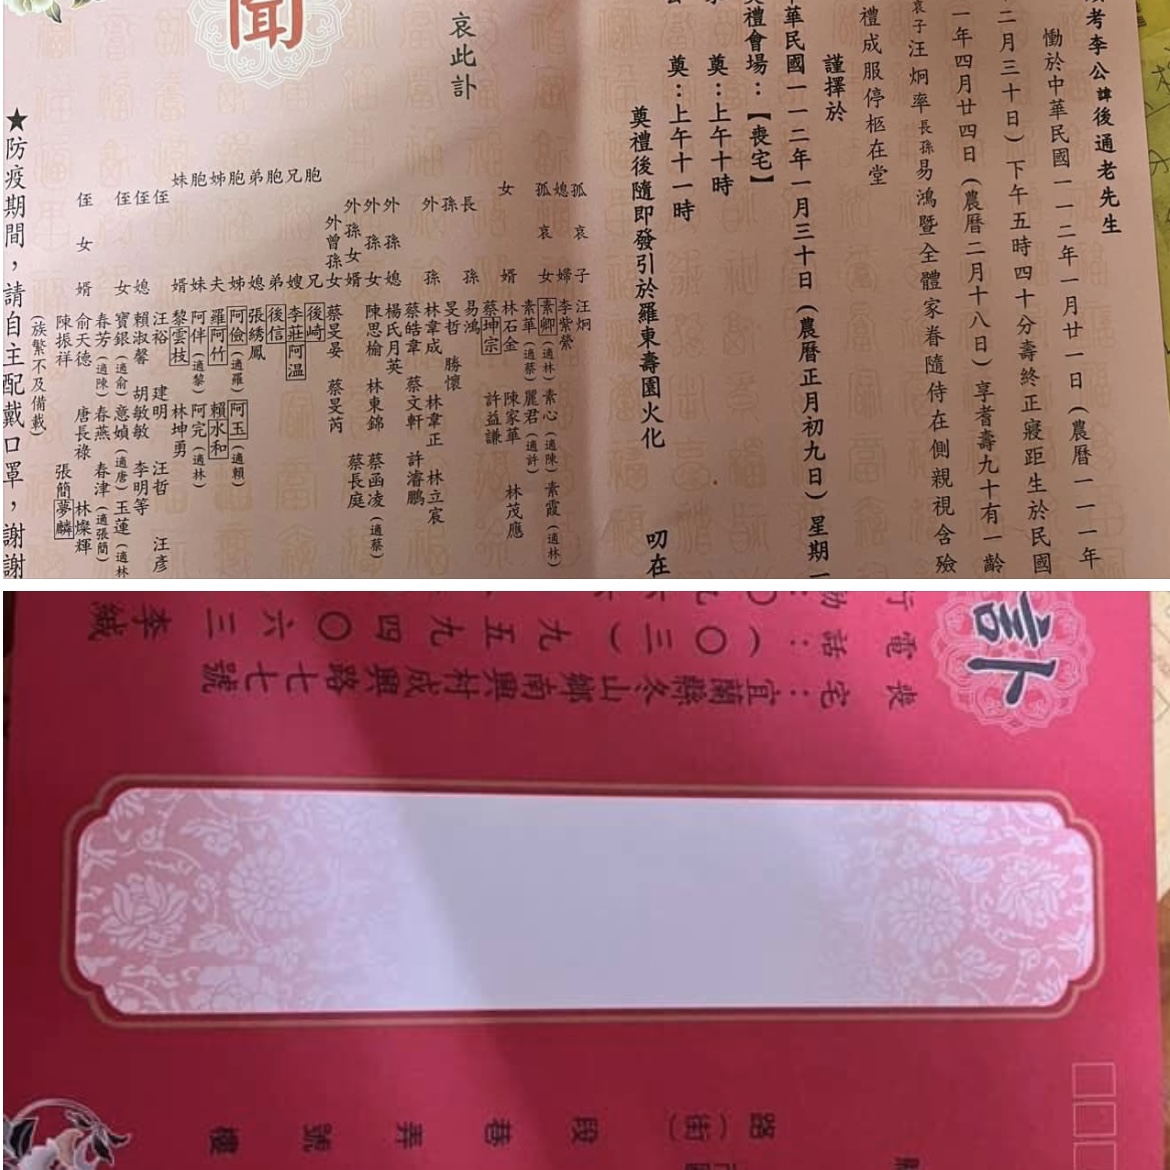 考李公諱後通老先生
慟於中華民國一一二年一月廿一日(農曆一一一年
二月三十日)下午五時四十分壽終正寢距生於民國
一年四月廿四日(農曆二月十八日)享耆壽九十有一齡
哀子汪炯率長孫易鴻暨全體家眷隨侍在側親視含殮
禮成服停柩在堂
謹擇於
華民國一一二年一月三十日(農曆正月初九日)星期一
奠禮會場:【喪宅】
奠:上午十時
奠:上午十一時
奠禮後隨即發引於羅東壽園火化 叨在
哀此訃
聞
孤哀子 汪炯
媳婦 李紫縈
孤哀女 素卿(適林) 素心(適陳) 素霞(適林)
素華(適蔡) 麗君(適許)
女婿 林石金 陳家華 林茂應
蔡坤宗 許益謙
長孫 易鴻
孫 旻哲 勝懷
外孫 林韋成 林韋正 林立宸
蔡皓韋 蔡文軒 許濬鵬
外孫媳 楊氏月英
外孫女 陳思榆 林東錦 蔡函凌(適蔡)
外孫女婿 蔡長庭
外曾孫女 蔡旻晏 蔡旻芮
胞兄 後崎
兄嫂 李莊阿温
胞弟 後信
弟媳 張綉鳳
胞姊 阿儉(適羅) 阿玉(適賴)
姊夫 羅阿竹 賴水和
胞妹 阿伴(適黎) 阿完(適林)
妹婿 黎雲枝 林坤勇
侄 汪裕 建明 汪哲 汪彥
侄媳 賴淑馨 胡敏敏 李明等
侄女 寶銀(適俞) 意媜(適唐) 玉蓮(適林
春芳(適陳) 春燕 春津(適張簡)
侄女婿 俞天德 唐長祿 林燦輝
陳振祥 張簡夢麟
(族繁不及備載)
★防疫期間,請自主配戴口罩,謝謝
訃
喪宅:宜蘭縣冬山鄉南興村成興路七七號
電話:(〇三)九五九四〇六三
路(街) 段 巷 弄 號 樓